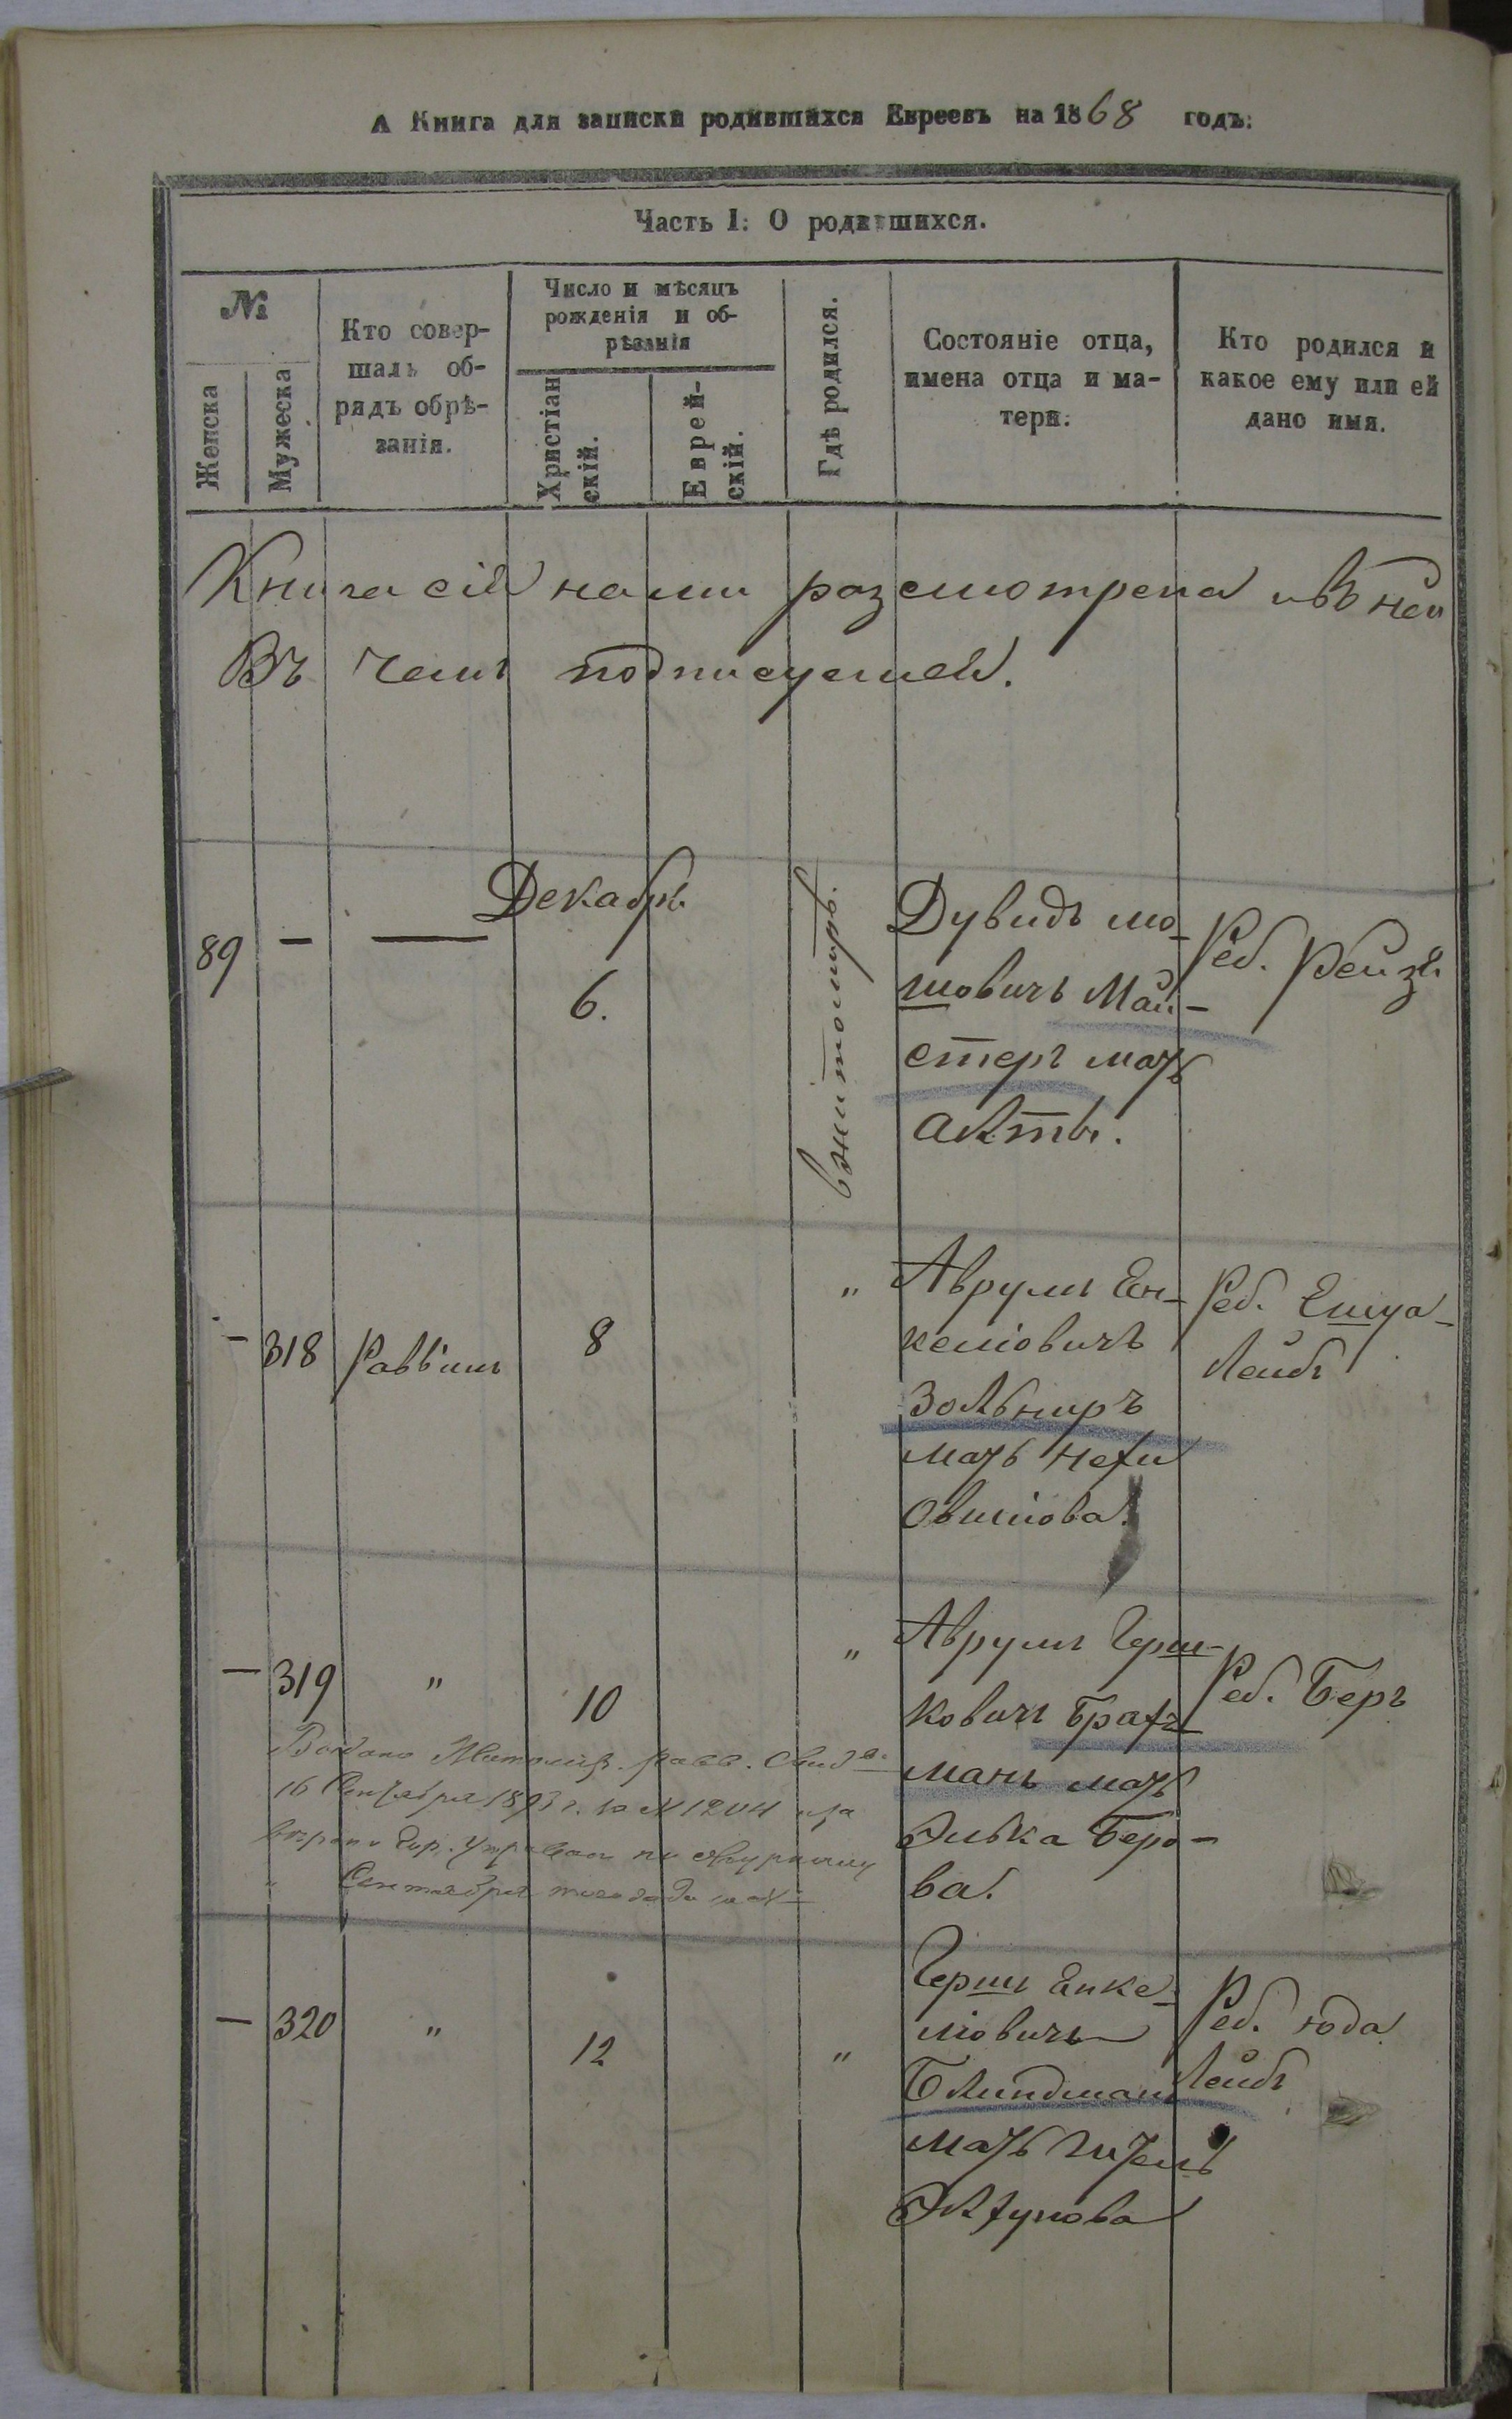 А Книга для записки родившихся Евреевъ на 1868 годъ:
Часть I: О родившихся.
№
Женска
Мужеска
Кто совер-
шалъ об-
рядъ обрѣ-
занія.
Число и мѣсяцъ
рожденія и об-
рѣзанія
Христіан
скій.
Еврей-
скій.
Гдѣ родился.
Состояніе отца,
имена отца и ма-
тери.
Кто родился и
какое ему или ей
дано имя.
Книга сія нами разсмотрена и въ ней
Въ чемъ подписуемся.
Декабрь
89 — — 6.
вжитомирѣ.
Дувидъ мо-
шовичъ Май-
стеръ мать
Реб. Рейзя
— 318 Раввинъ 8 "
Аврумъ Ен-
келіовичъ
Зольниръ
мать нехи
Овшіова.
Реб. Ешуа-
Лейбъ
— 319 " 10 "
Аврумъ Герш-
ковичъ Трахт-
манъ мать
Элька Беро-
ва.
Реб. Беръ
16 1893 г. за №
Сентября того года за №
— 320 " 12 "
Гершъ Енке-
ліовичъ
Блиндманъ
мать Гитель
Реб. юда
Лейбъ